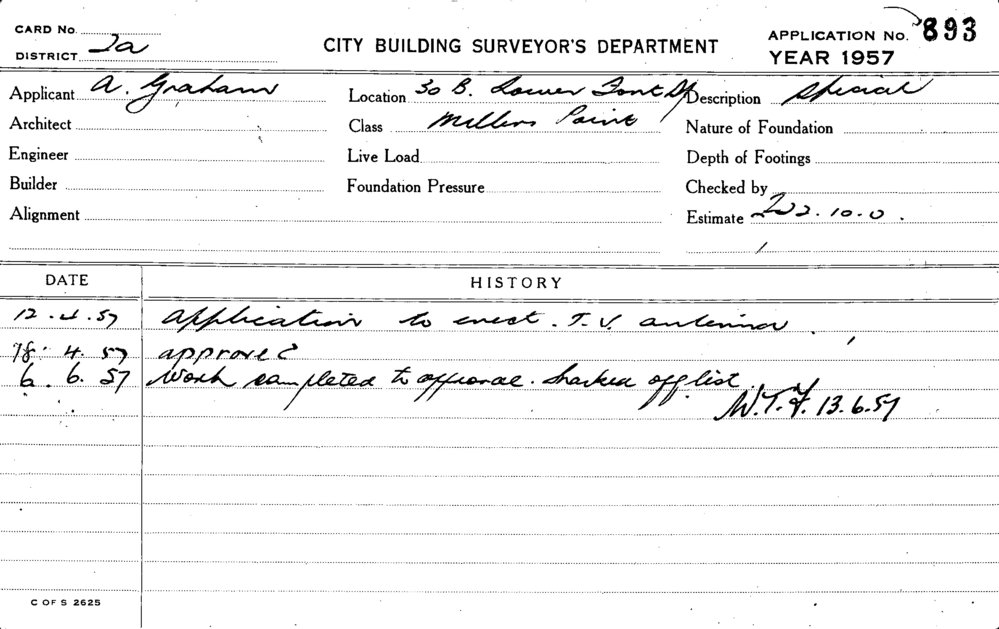 CARD No.
DISTRICT 2a
CITY BUILDING SURVEYOR'S DEPARTMENT
APPLICATION No. 893
YEAR 1957
Applicant A. Graham
Location 30 B. Lower Fort St
Description Special
Architect
Class Millers Point
Nature of Foundation
Engineer
Live Load
Depth of Footings
Builder
Foundation Pressure
Checked by
Alignment
Estimate 10.0.
DATE HISTORY
12.4.57 Application to erect. T.V. antenna.
18.4.57 approved
6.6.57 Work completed to approval. Marked off list.
W.T.F. 13.6.57
C OF S 2625